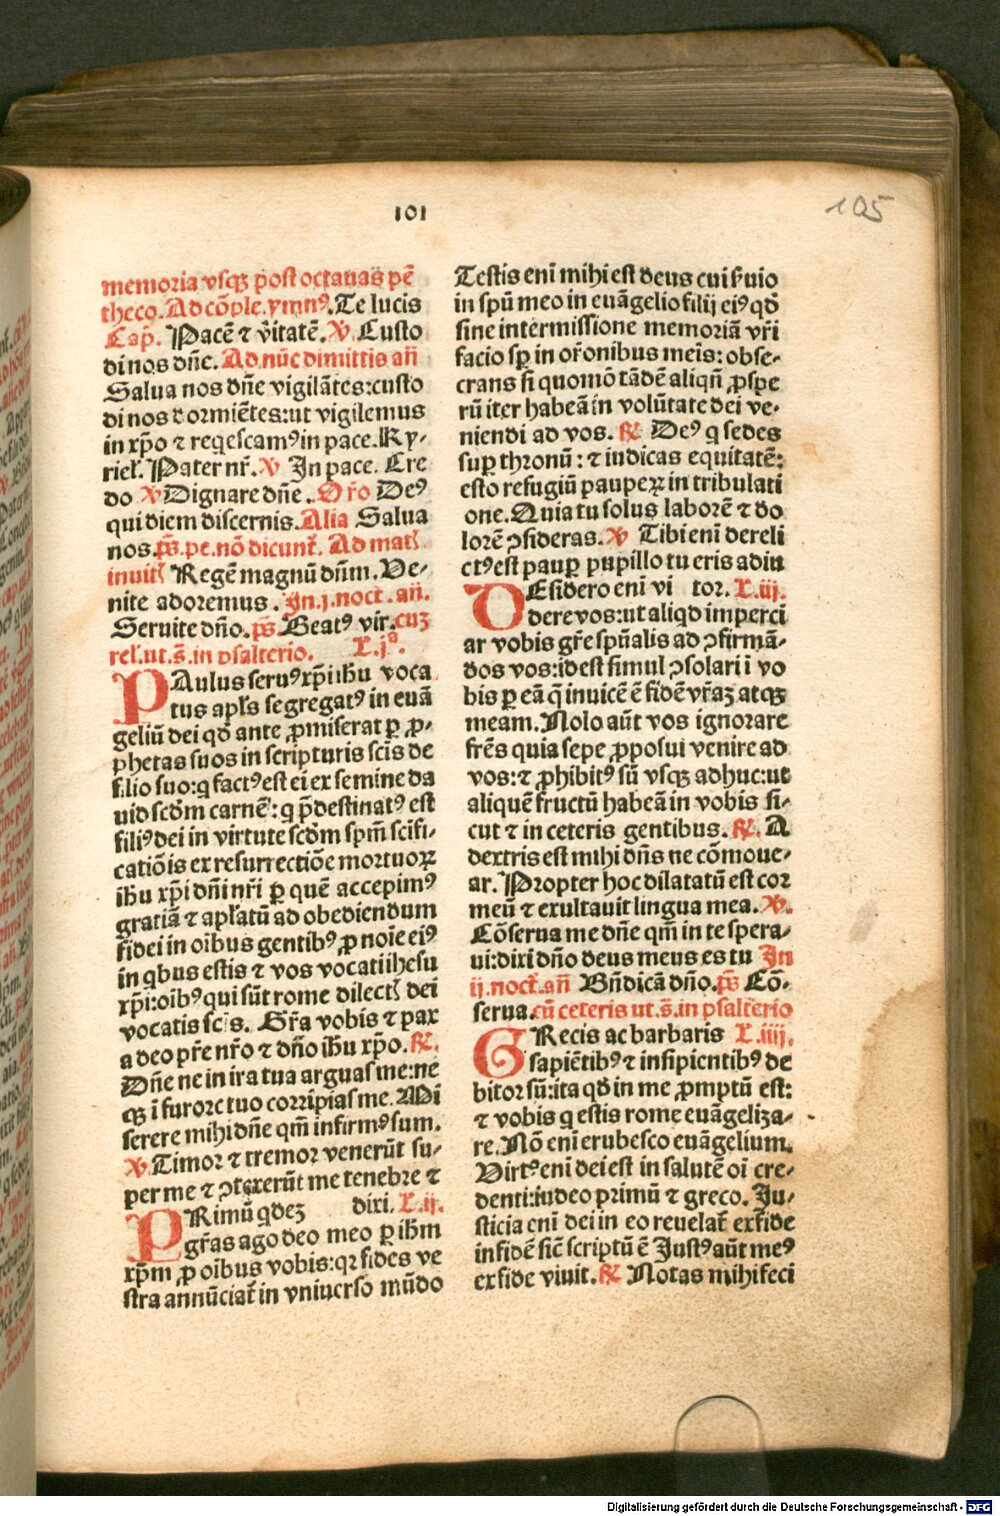 101
105
memoria vsqꝫ post octauas pē
theco. Ad cōple. ymnꝰ. Te lucis
Cap̄. Pacē ⁊ v̄itatē. ℣. Custo
di nos dn̄e. Ad nūc dimittis an̄
Salua nos dn̄e vigilātes: custo
di nos dormiētes: ut vigilemus
in xp̄o ⁊ reqescamꝰ in pace. Ky⸗
riel̄. Pater nr̄. ℣ In pace. Cre
do ℣ Dignare dn̄e. Or̄o Deꝰ
qui diem discernis. Alia Salua
nos. ps̄. pe. nō dicunt̄. Ad mat
inuit Regē magnū dn̄m. Ve⸗
nite adoremus. In. j. noct. an̄.
Seruite dn̄o. ps̄. Beatꝰ vir. cuʒ
rel̄. ut. s̄. in psalterio. L. jª.
PAulus seruꝰ xp̄i ihū voca
tus apl̄s segregatꝰ in euā
geliū dei qd̄ ante ꝓmiserat ꝑ ꝓ⸗
phetas suos in scripturis scīs de
filio suo: q factꝰ est ei ex semine da
uid scd̄m carnē: q p̄destinatꝰ est
filiꝰ dei in virtute scd̄m spm̄ scīfi⸗
catiōis ex resurrectiōe mortuoꝝ
ihū xp̄i dn̄i nr̄i ꝑ quē accepimꝰ
gratiā ⁊ apl̄atū ad obediendum
fidei in oībus gentibꝰ ꝓ noīe eiꝰ
in qbus estis ⁊ vos vocati ihesu
xp̄i: oībꝰ qui sūt rome dilect dei
vocatis scīs. Gr̄a vobis ⁊ pax
a deo pr̄e nr̄o ⁊ dn̄o ihū xp̄o. ℟.
Dn̄e ne in ira tua arguas me: ne
qꝫ ī furore tuo corripias me. Mi
serere mihi dn̄e qm̄ infirmꝰ sum.
℣ Timor ⁊ tremor venerūt su⸗
per me ⁊ ꝯtexerūt me tenebre ⁊
PRimū qdeʒ dixi. L. ij.
gr̄as ago deo meo ꝑ ihm̄
xp̄m ꝓ oībus vobis: qꝛ fides ve
stra annūciat̄ in vniuerso mūdo
Testis enī mihi est deus cui s̄uio
in spū meo in euāgelio filij eiꝰ qd̄
sine intermissione memoriā vr̄i
facio sꝑ in or̄onibus meis: obse⸗
crans si quomō tādē aliqn̄ ꝓspe
rū iter habeā in volūtate dei ve⸗
niendi ad vos. ℟ Deꝰ q sedes
suꝑ thronū: ⁊ iudicas equitatē:
esto refugiū pauperꝝ in tribulati
one. Quia tu solus laborē ⁊ do
lorē ꝯsideras. ℣ Tibi enī dereli
ctꝰ est pauꝑ pupillo tu eris adiu
DEsidero enī vi tor. L. iij.
dere vos: ut aliqd imperci
ar vobis gr̄e spūalis ad ꝯfirmā⸗
dos vos: id est simul ꝯsolari ī vo
bis ꝑ eā q̄ inuicē ē fidē vr̄aʒ atqꝫ
meam. Nolo aūt vos ignorare
fr̄es quia sepe ꝓposui venire ad
vos: ⁊ ꝓhibitꝰ sū vsqꝫ adhuc: ut
aliquē fructū habeā in vobis si⸗
cut ⁊ in ceteris gentibus. ℟. A
dextris est mihi dn̄s ne cōmoue⸗
ar. Propter hoc dilatatū est cor
meū ⁊ exultauit lingua mea. ℣.
Cōserua me dn̄e qm̄ in te spera⸗
ui: dixi dn̄o deus meus es tu In
ij. noct. an̄ Bn̄dicā dn̄o. ps̄ Cō⸗
serua. cū ceteris ut. s̄. in psalterio
GRecis ac barbaris L. iiij.
sapiētibꝰ ⁊ insipientibꝰ de
bitor sū: ita qd̄ in me ꝓmptū est:
⁊ vobis q estis rome euāgeliza⸗
re. Nō enī erubesco euāgelium.
Virtꝰ enī dei est in salutē oī cre⸗
denti: iudeo primū ⁊ greco. Ju⸗
sticia enī dei in eo reuelat̄ ex fide
in fidē sic̄ scriptū ē Justꝰ aūt meꝰ
ex fide viuit. ℟ Notas mihi feci
Digitalisierung gefördert durch die Deutsche Forschungsgemeinschaft - DFG